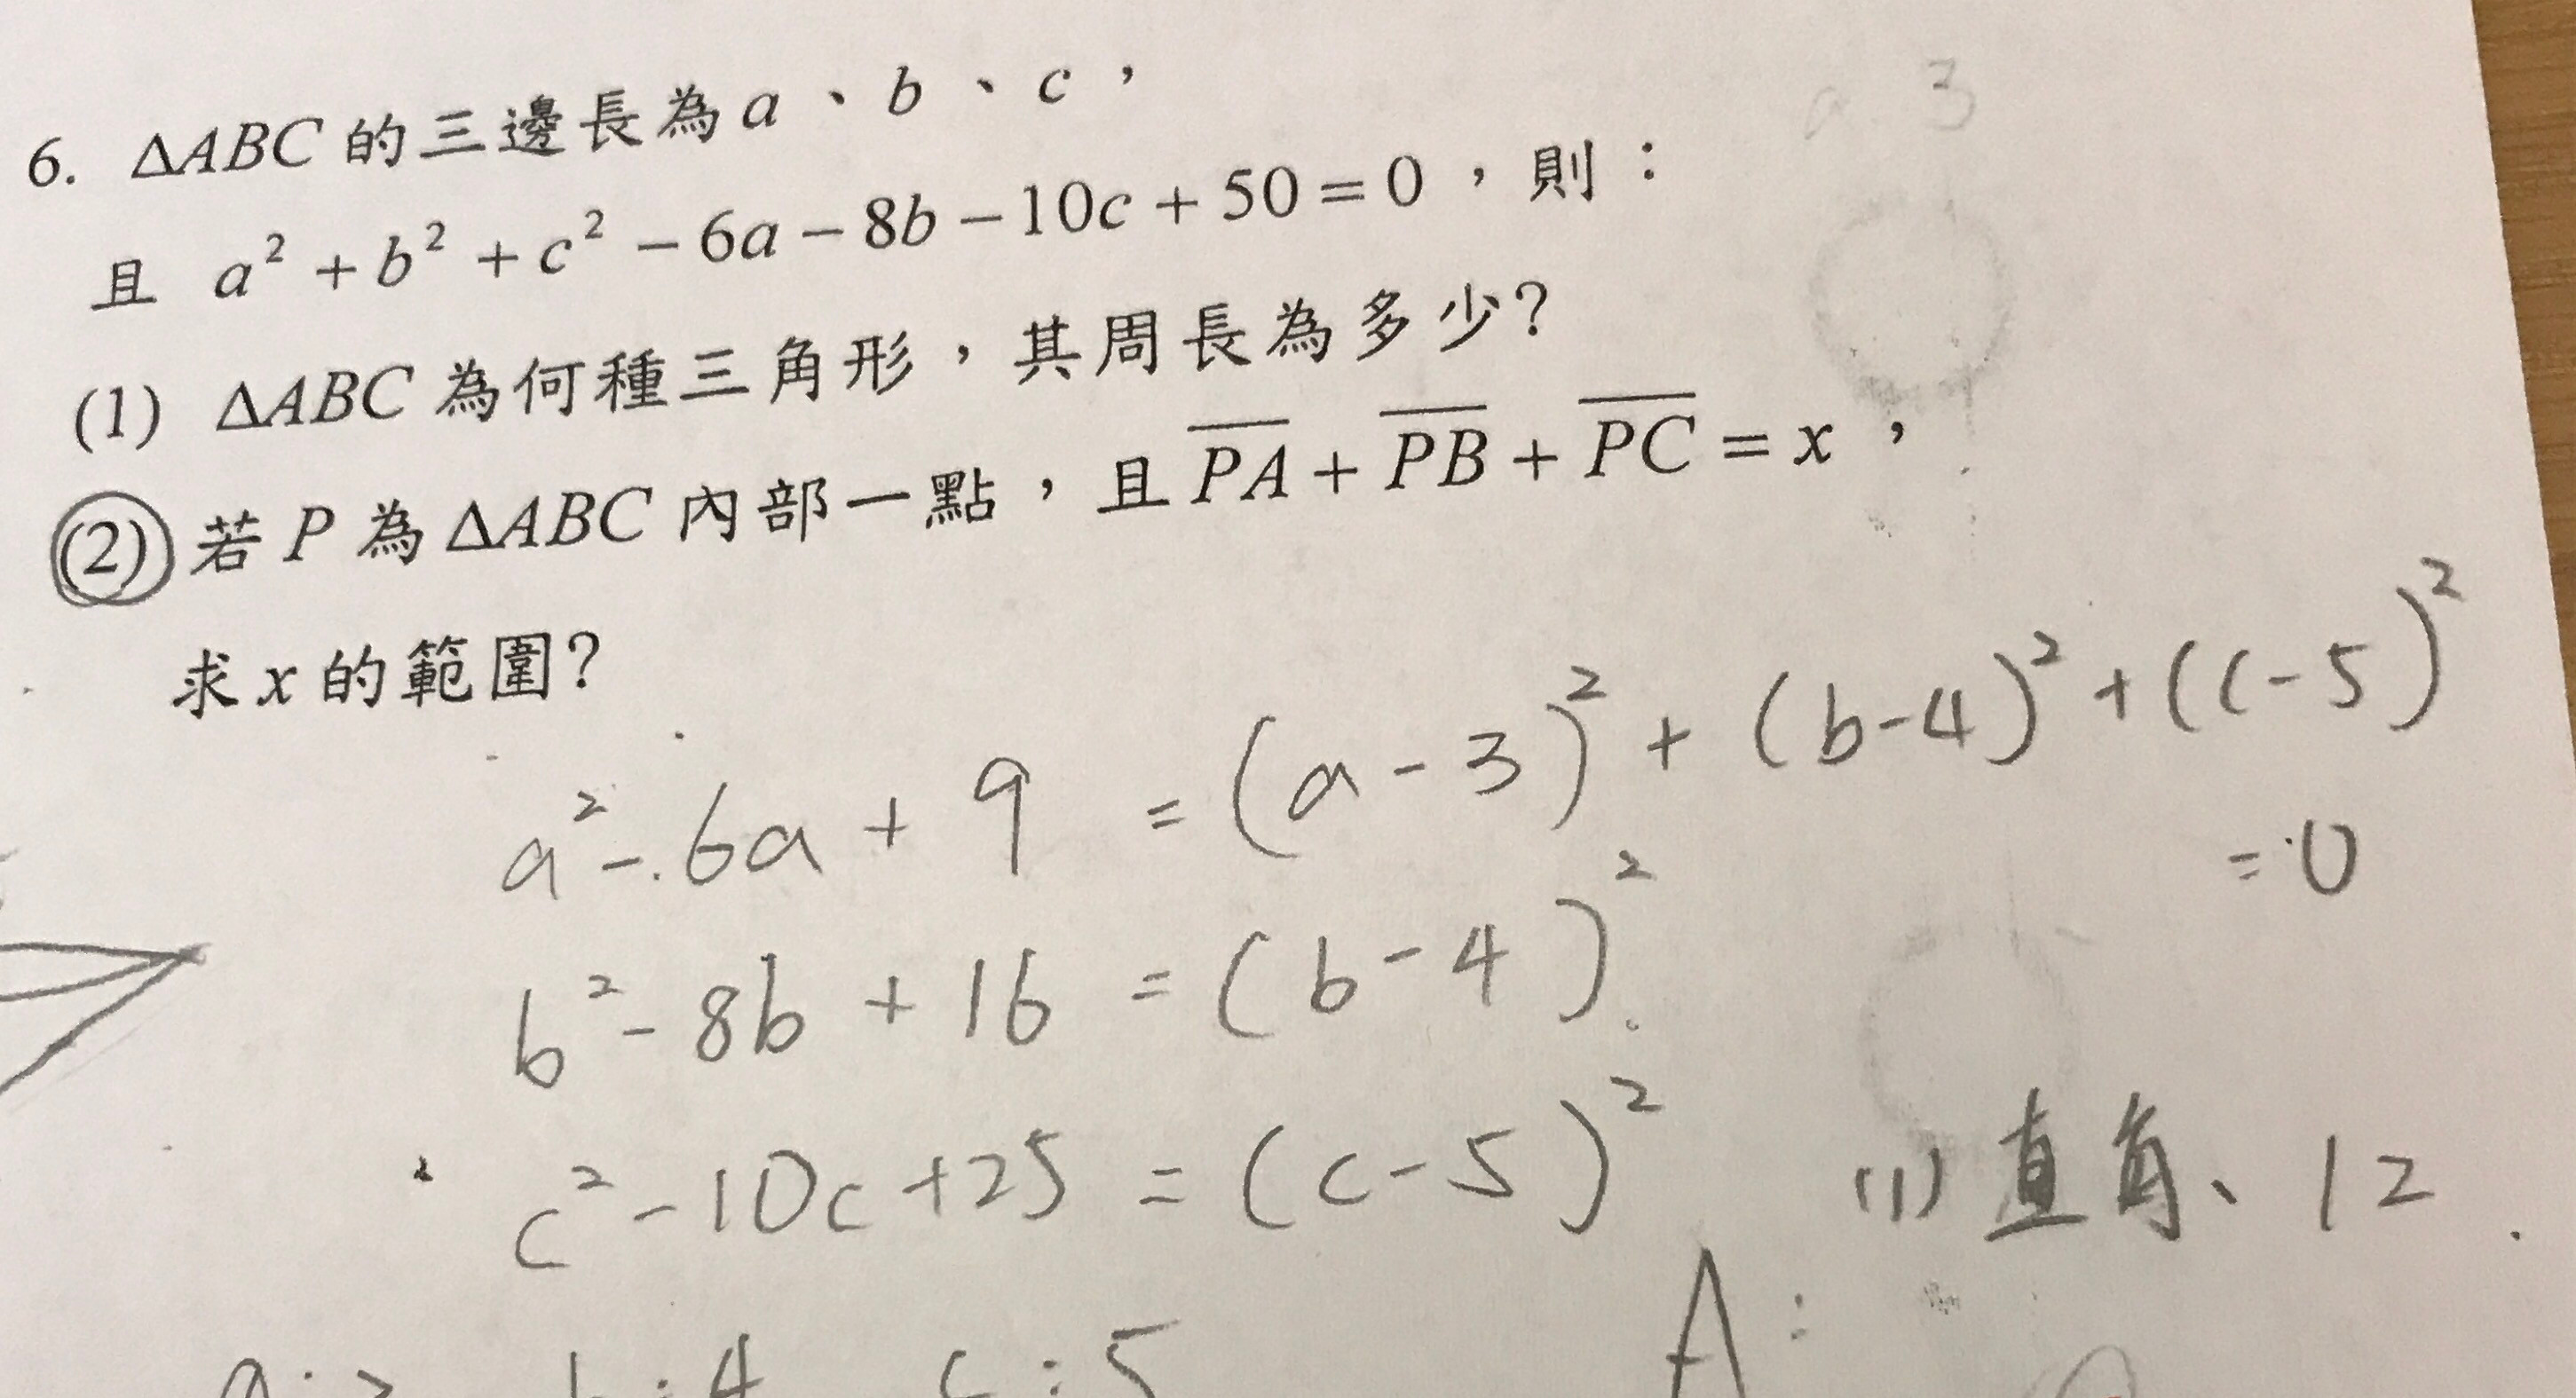 6. ΔABC 的三邊長為 a、b、c，
且 a² + b² + c² − 6a − 8b − 10c + 50 = 0，則：
(1) ΔABC 為何種三角形，其周長為多少?
(2) 若 P 為 ΔABC 內部一點，且 PA + PB + PC = x，
求 x 的範圍?
a 3
a² - 6a + 9 = (a-3)² + (b-4)² + (c-5)²
= 0
b² - 8b + 16 = (b-4)²
c² - 10c + 25 = (c-5)²
(1) 直角、12
A:
b:4 c:5